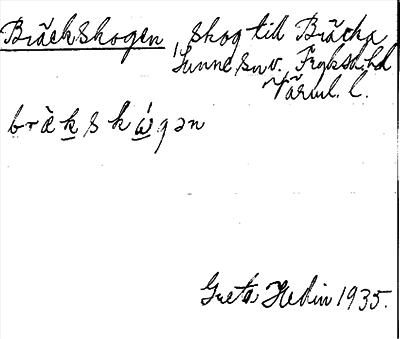 Bräckskogen skog till Bräcka
Sunne snv. Frykshld
Värml. l.
brὰkskώgən
Greta Hedin 1935.